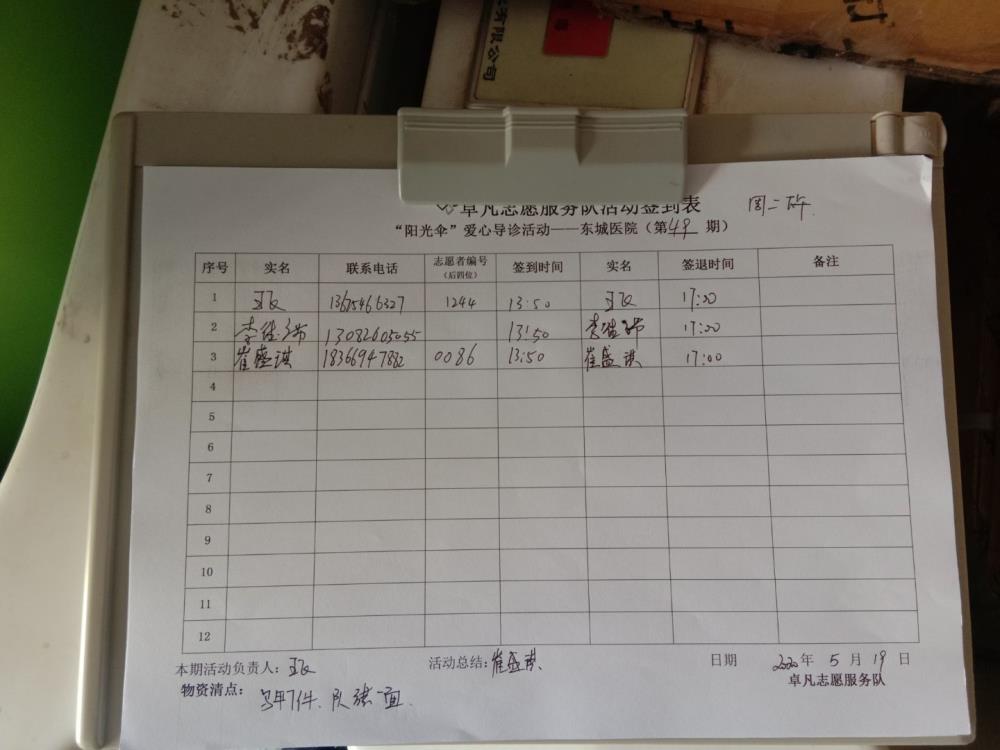 有限公司
卓凡志愿服务队活动签到表 周二下午
“阳光伞”爱心导诊活动——东城医院（第49期）
序号 实名 联系电话 志愿者编号（后四位） 签到时间 实名 签退时间 备注
1 13675466327 1244 13:50 17:00
2 李佳 13082605055 13:50 李佳 17:00
3 崔盛琪 18366947882 0086 13:50 崔盛琪 17:00
4
5
6
7
8
9
10
11
12
本期活动负责人： 活动总结：崔盛琪 日期 2020年5月19日
物资清点：马甲7件、队旗一面. 卓凡志愿服务队